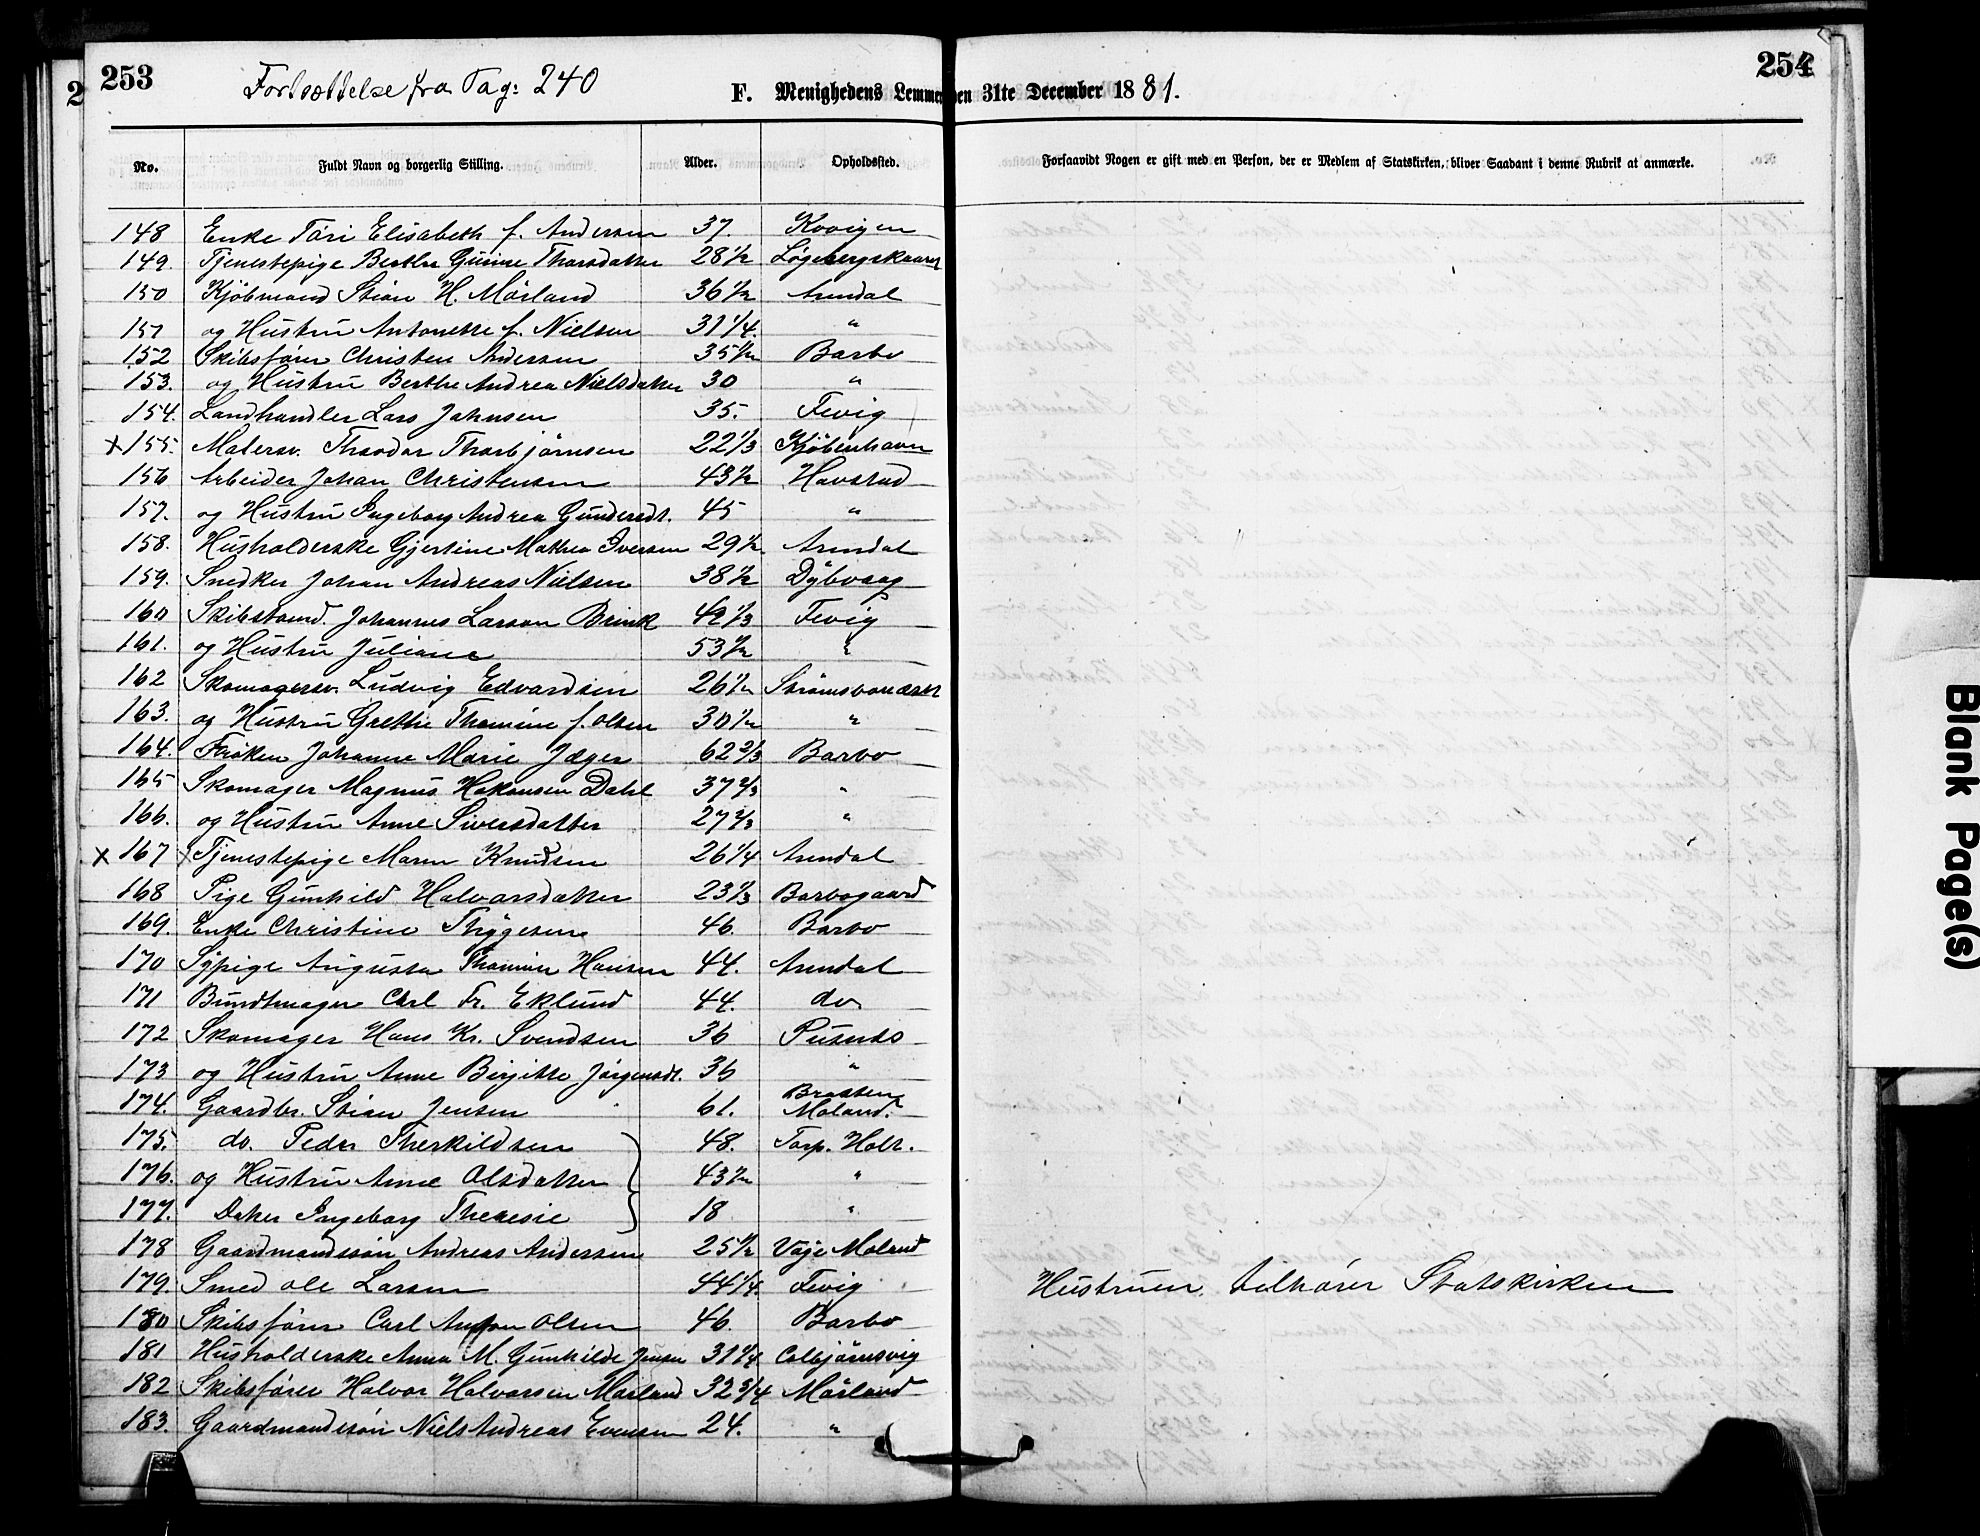 253 Fortsættelse fra Pag: 240 F. Menighedens Lemmer den 31te December 1881. 254
No. Fuldt Navn og borgerlig Stilling. Alder. Opholdssted. Forsaavidt Nogen er gift med en Person, der er Medlem af Statskirken, bliver Saadant i denne Rubrik at anmærke.
148 Enke Tari Elisabeth f. Andersen 37. Kovigen
149. Tjenestepige Berthe Gurine Tharsdatter 28 1/2 Løgebergskaaret
150 Kjöbmand Stian H. Mörland 36 1/2 Arendal
151 og Hustru Antonette f. Nielsen 31 1/4. "
152 Skibsförer Christen Andersen 35 1/2 Barbo
153. og Hustru Berthe Andrea Nielsdatter 30 "
154. Landhandler Lars Jahnsen 35. Fevig
x 155. Malersv. Theodor Thorbjörnsen 22 1/3 Kjöbenhavn
156 Arbeider Johan Christensen 43 1/2 Havstad
157. og Hustru Ingeborg Andrea Gundersdt. 45 "
158. Husholderske Gjertine Mathea Iversen 29 1/2 Arendal
159. Snedker Johan Andreas Nielsen 38 1/2 Dybvaag
160 Skibstömd. Johannes Larson Brink 42 1/3 Fevig
161. og Hustru Juliane 53 1/2 "
162 Skomagersv. Ludvig Edvardsen 26 1/2 Strömsboneset
163. og Hustru Grethe Thomine f. Olsen 30 1/2 "
164. Fröken Johanne Marie Jæger 62 2/3 Barbo
165 Skomager Magnus Hakonsen Dahl 37 2/3 "
166. og Hustru Anne Siversdatter 27 2/3 "
x 167 Tjenestepige Maren Knudsen 26 1/4 Arendal
168 Pige Gunhild Halvorsdatter 23 1/3 Barbogaard
169. Enke Christine Thygesen 46. Barbo
170 Sypige Augusta Thomine Hansen 44. Arendal
171 Bundtmager Carl Fr. Eklund 44. do
172 Skomager Hans Kr. Svendsen 36 Pusnes
173 og Hustru Anne Birgitte Jörgensdt. 36 "
174. Gaardbr. Stian Jensen 61. Bratten Moland.
175. do. Peder Therkildsen 48. Torp. Holt.
176. og Hustru Anne Olsdatter 43 1/2 "
177. Datter Ingeborg Theresie 18 "
178 Gaardmandssön Andreas Andersen 25 1/2 Vöje Moland
179. Smed Ole Larsen 44 1/4. Fevig Hustruen tilhörer Statskirken
180 Skibsförer Carl Anton Olsen 46. Barbo
181 Husholderske Anna M. Gunhilde Jensen 31 1/4 Colbjörnsvig
182 Skibsförer Halvor Halvorsen Mörland 32 3/4 Mörland
183. Gaardmandssön Niels Andreas Evensen 24. "
Blank Page(s)